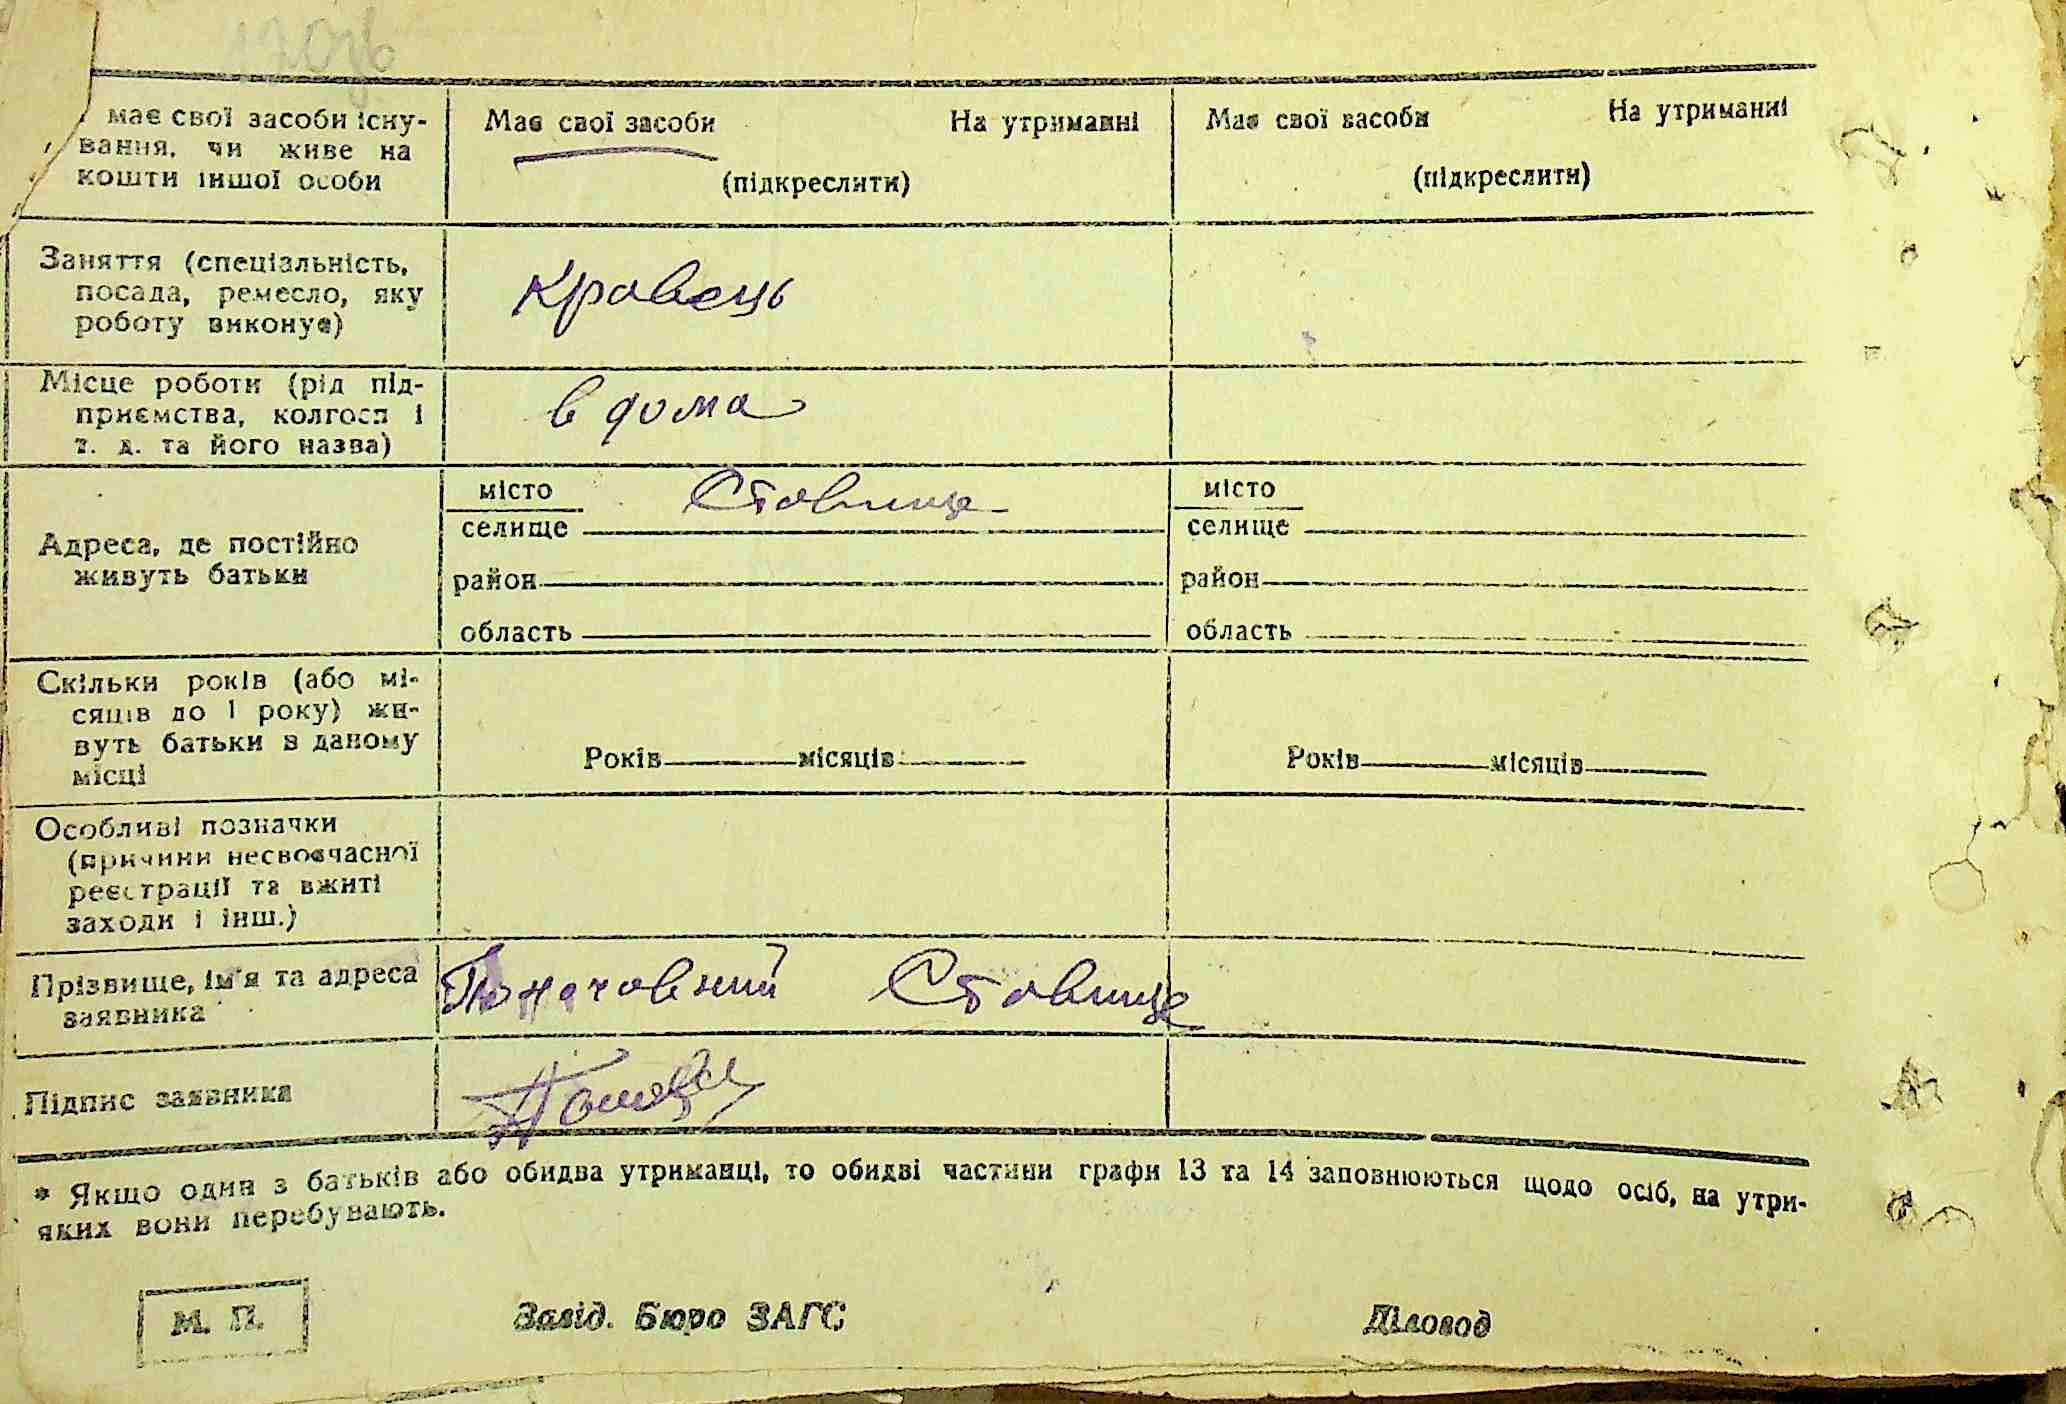 170зв
має свої засоби існу- Має свої засоби На утриманні Має свої засоби На утриманні
вання, чи живе на
кошти іншої особи (підкреслити) (підкреслити)
Заняття (спеціальність,
посада, ремесло, яку Кравець
роботу виконує)
Місце роботи (рід під-
приємства, колгосп і в дома
т. д. та його назва)
місто Ставище місто
селище селище
Адреса, де постійно
живуть батьки район район
область область
Скільки років (або мі-
сяців до 1 року) жи-
вуть батьки в даному Років місяців Років місяців
місці
Особливі позначки
(причини несвоєчасної
реєстрації та вжиті
заходи і інш.)
Прізвище, ім'я та адреса Ставище
заявника
Підпис заявника
* Якщо один з батьків або обидва утриманці, то обидві частини графи 13 та 14 заповнюються щодо осіб, на утри-
яких вони перебувають.
М. П. Завід. Бюро ЗАГС Діловод